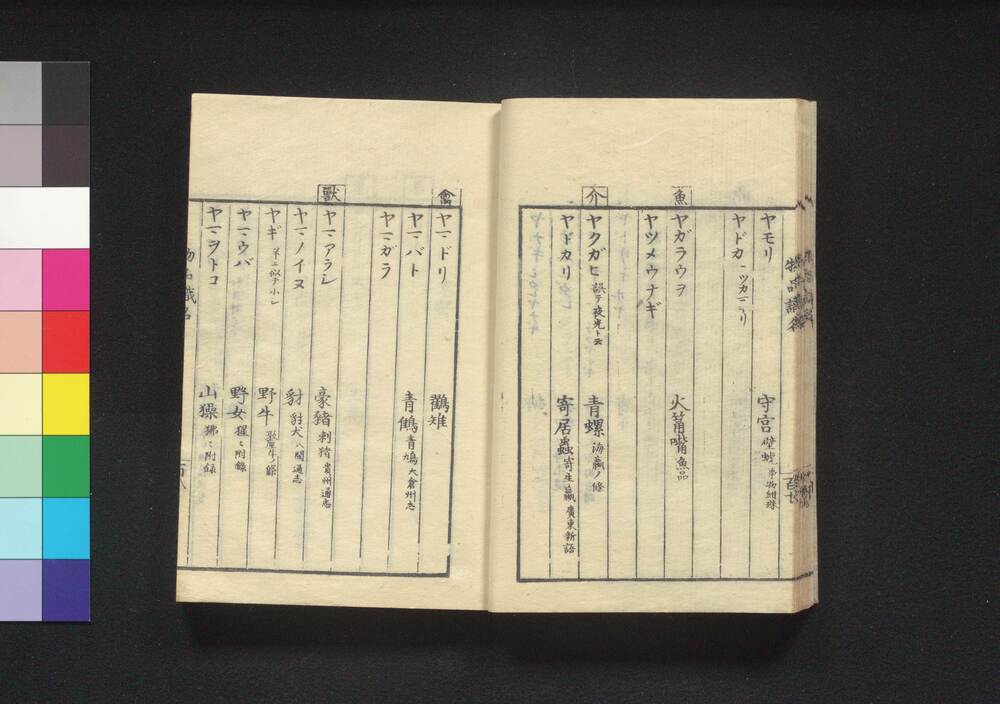 ヤモリ 守宮 壁蝘 事物紺珠
ヤドカ
魚
ヤガラウヲ 火筩嘴 魚品
ヤツメウナギ
介
ヤクガヒ 誤テ夜光ト云 青螺 海蠃ノ條
ヤドカリ 寄居蟲 寄生蠃 廣東新語
禽
ヤマドリ 鸐雉
ヤマバト 青鶴 青鳩 大倉州志
ヤマガラ
獸
ヤマアラシ 豪豬 刺猪 貴州通志
ヤマノイヌ 豺 豺犬 八閩通志
ヤギ 野牛
ヤマウバ 野女 猩々附錄
ヤマヲトコ 山𤢖 狒々附錄
物品識名